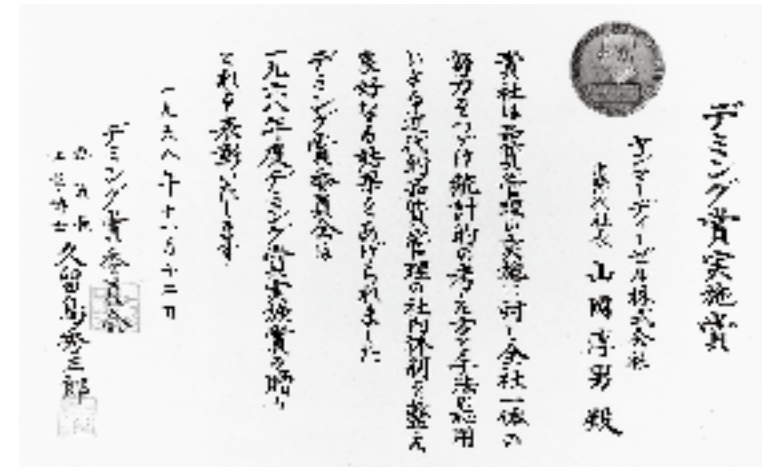 デミング賞実施賞
ヤンマーディーゼル株式会社
取締役社長 山岡淳男 殿
貴社は品質管理の実施に対し全社一体の
努力をつづけ統計的の考え方と手法を応用
いする近代的品質管理の社内体制を整え
良好なる結果をあげられました
デミング賞委員会は
一九六八年度デミング賞実施賞を贈り
これを表彰いたします
一九六八年十一月十二日
デミング賞委員会
委員長
工学博士 久留島秀三郎